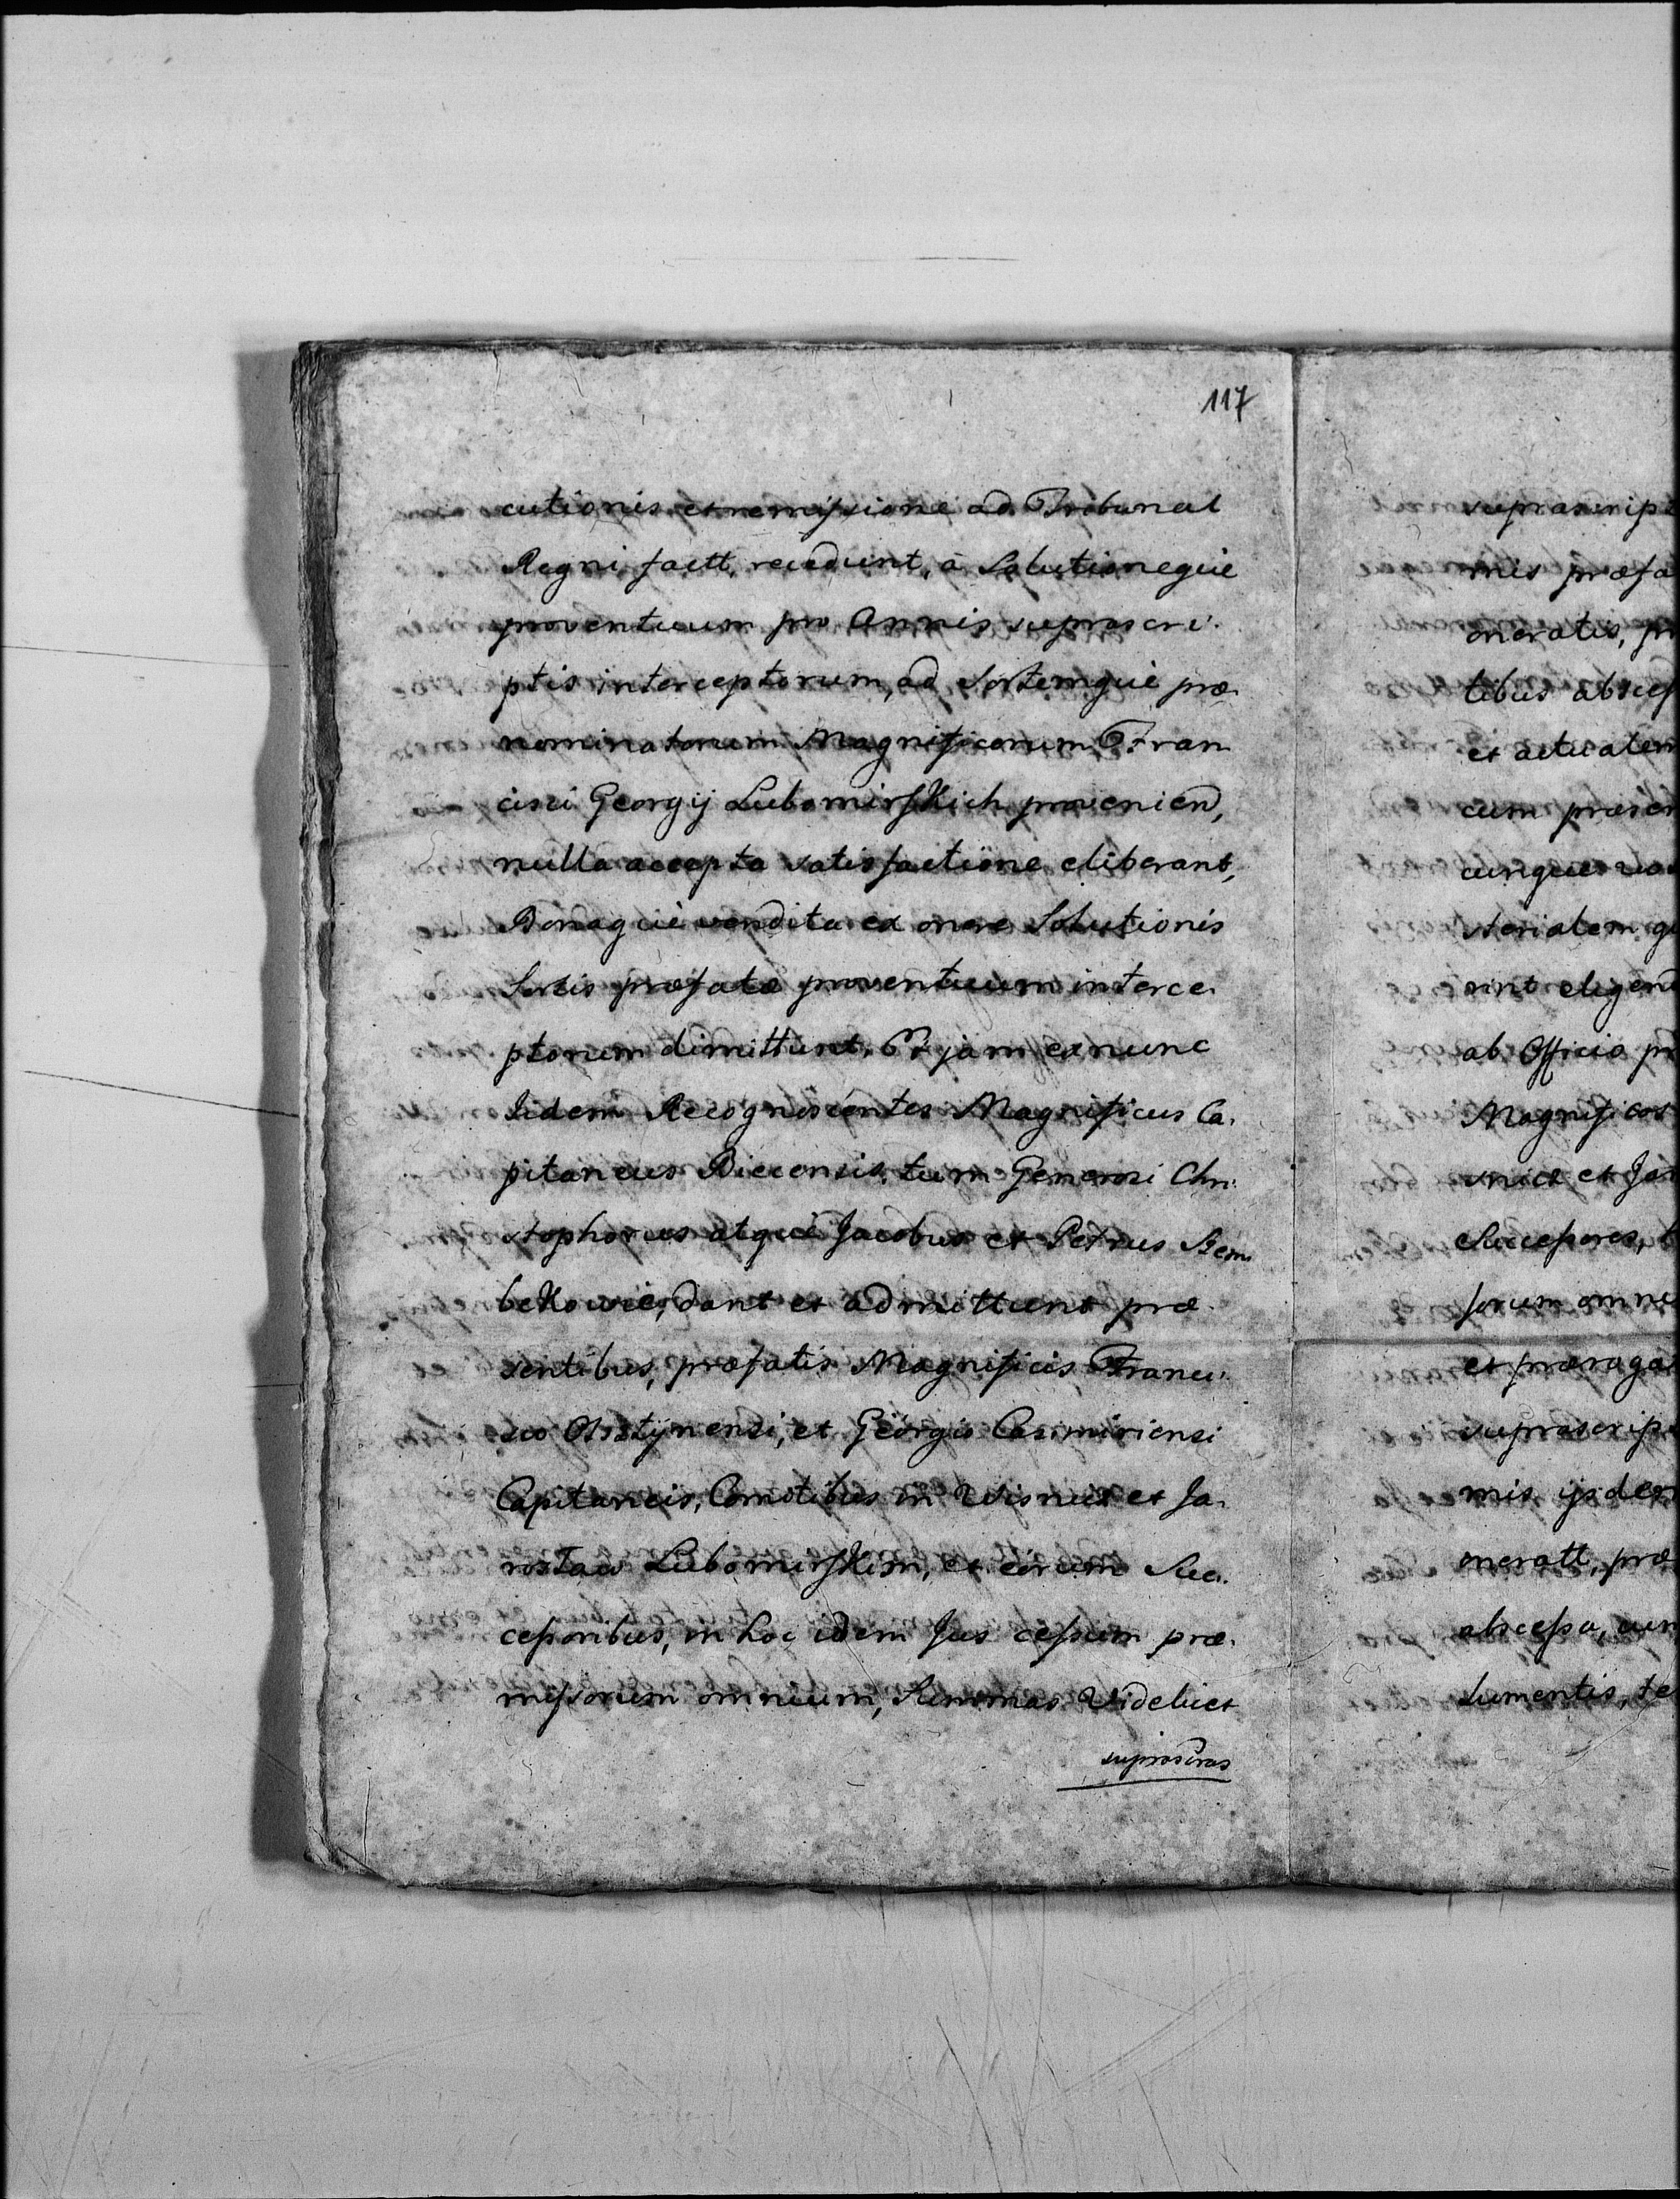 117
cutionis et remissione ad Tribunal
Regni factt, recedunt, à Solutionequè
proventuum pro Annis suprascri-
ptis interceptorum, ad Sortemquè præ-
nominatorum Magnificorum Fran
cisci Georgij Lubomirskich proveniend,
nulla accepta satisfactione eliberant,
Bonaquè vendita ex onere Solutionis
Sortis præfatæ proventuum interce-
ptorum dimittunt. Et jam exnunc
Iidem Recognoscentes Magnificus Ca-
pitaneus Biecensis, tum Generosi Chri-
stophorus atquè Jacobus et Petrus Szem-
bekowie, dant et admittunt præ-
sentibus, præfatis Magnificis Franci-
sco Olsztynensi, et Georgio Casimiriensi
Capitaneis, Comitibus in Wisnicz et Ja-
roslaw Lubomirskim, et eorum Suc-
cessoribus, in hoc idem Jus cessum præ-
missorum omnium, Summas Videlicet
suprascras
suprascrip
mis præfa
oneratis, pr
tibus abscess
et actualem
cum præscr
cunque
sterialem
rint eligend
ab Officio pr
Magnificos
snicz et Jar
Successores,
sorum omni
et præroga
suprascrip
mis ijsdem
oneratt, præ
abscessu, cum
lumentis, te